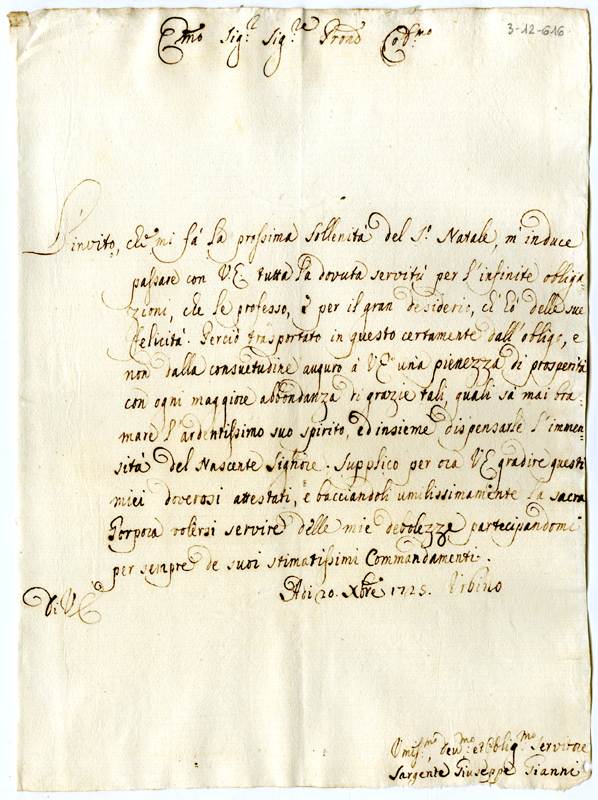 3-12-616
Emo Sig.r Sig.re Prone Col.mo
L'invito, che mi fà la prossima sollenità del S.o Natale, m'induce
passare con V.E. tutta la dovuta servitù per l'infinite obliga-
zioni, che le professo, e per il gran desiderio, ch'hò delle sue
felicità. Perciò trasportato in questo certamente dall'obligo, e
non dalla consuetudine auguro à V.E. una pienezza di prosperità
con ogni maggiore abbondanza di grazie tali, quali sà mai bra-
mare l'ardentissimo suo spirito, ed insieme dispensarle l'immen-
sità del Nascente Signore. Supplico per ora V.E. gradire questi
miei doverosi attestati, e bacciandoli umilissimamente la sacra
Porpora volersi servire delle mie debolezze partecipandomi
per sempre de suoi stimatissimi Commandamenti.
Di V.E. Adi 20. Xbre 1725. Urbino
Umiss.mo, dev.mo et Oblig.mo Servitore
Sargente Giuseppe Gianni